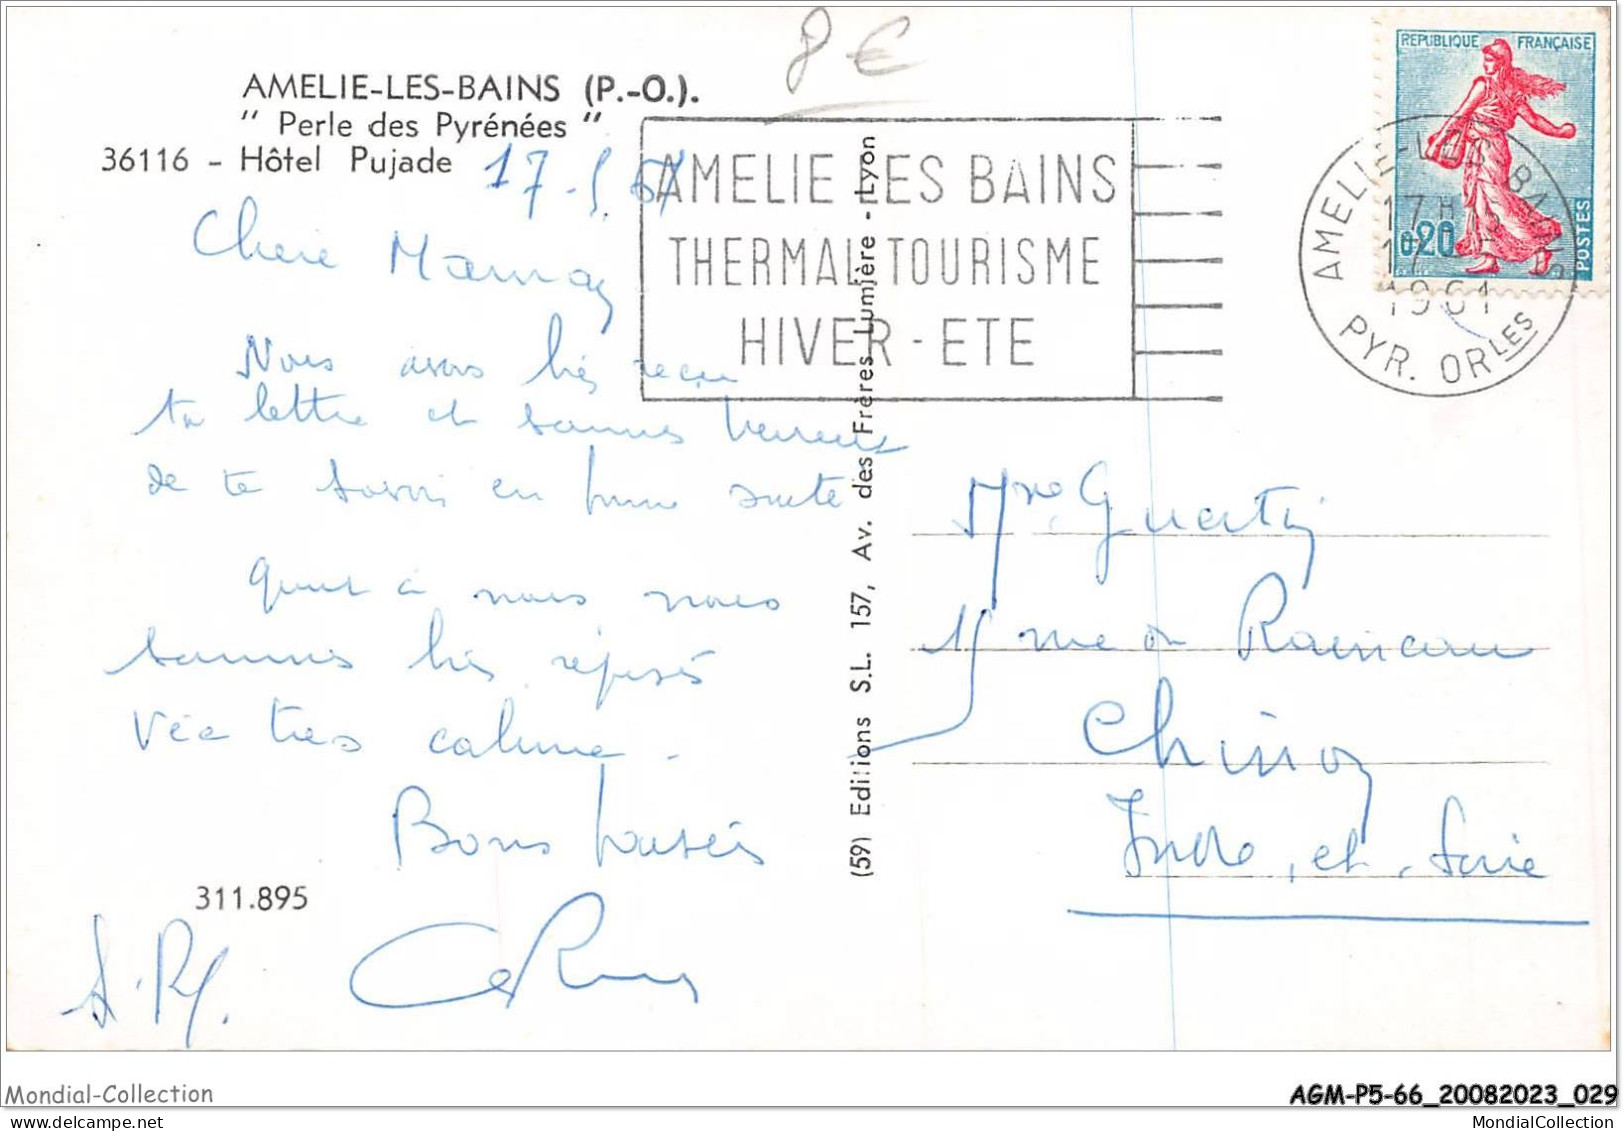 8 €
AMELIE-LES-BAINS (P.-O.).
" Perle des Pyrénées "
36116 - Hôtel Pujade
17-5 61
Chère Maman
Nous avons bien reçu
ta lettre et sommes heureux
de te savoir en bonne santé
Quant à nous nous
sommes bien reposés
Vie très calme -
Bons baisers
311.895
AMELIE LES BAINS
THERMAL TOURISME
HIVER - ETE
REPUBLIQUE FRANÇAISE
0,20
POSTES
AMELIE-LES-BAINS
17 H
17
1961
PYR. ORLES
(59) Editions S.L. 157, Av. des Frères Lumière - Lyon
Mme Guertin
15 rue
Chinon
Indre, et, Loire
Mondial-Collection
AGM-P5-66_20082023_029
www.delcampe.net
MondialCollection